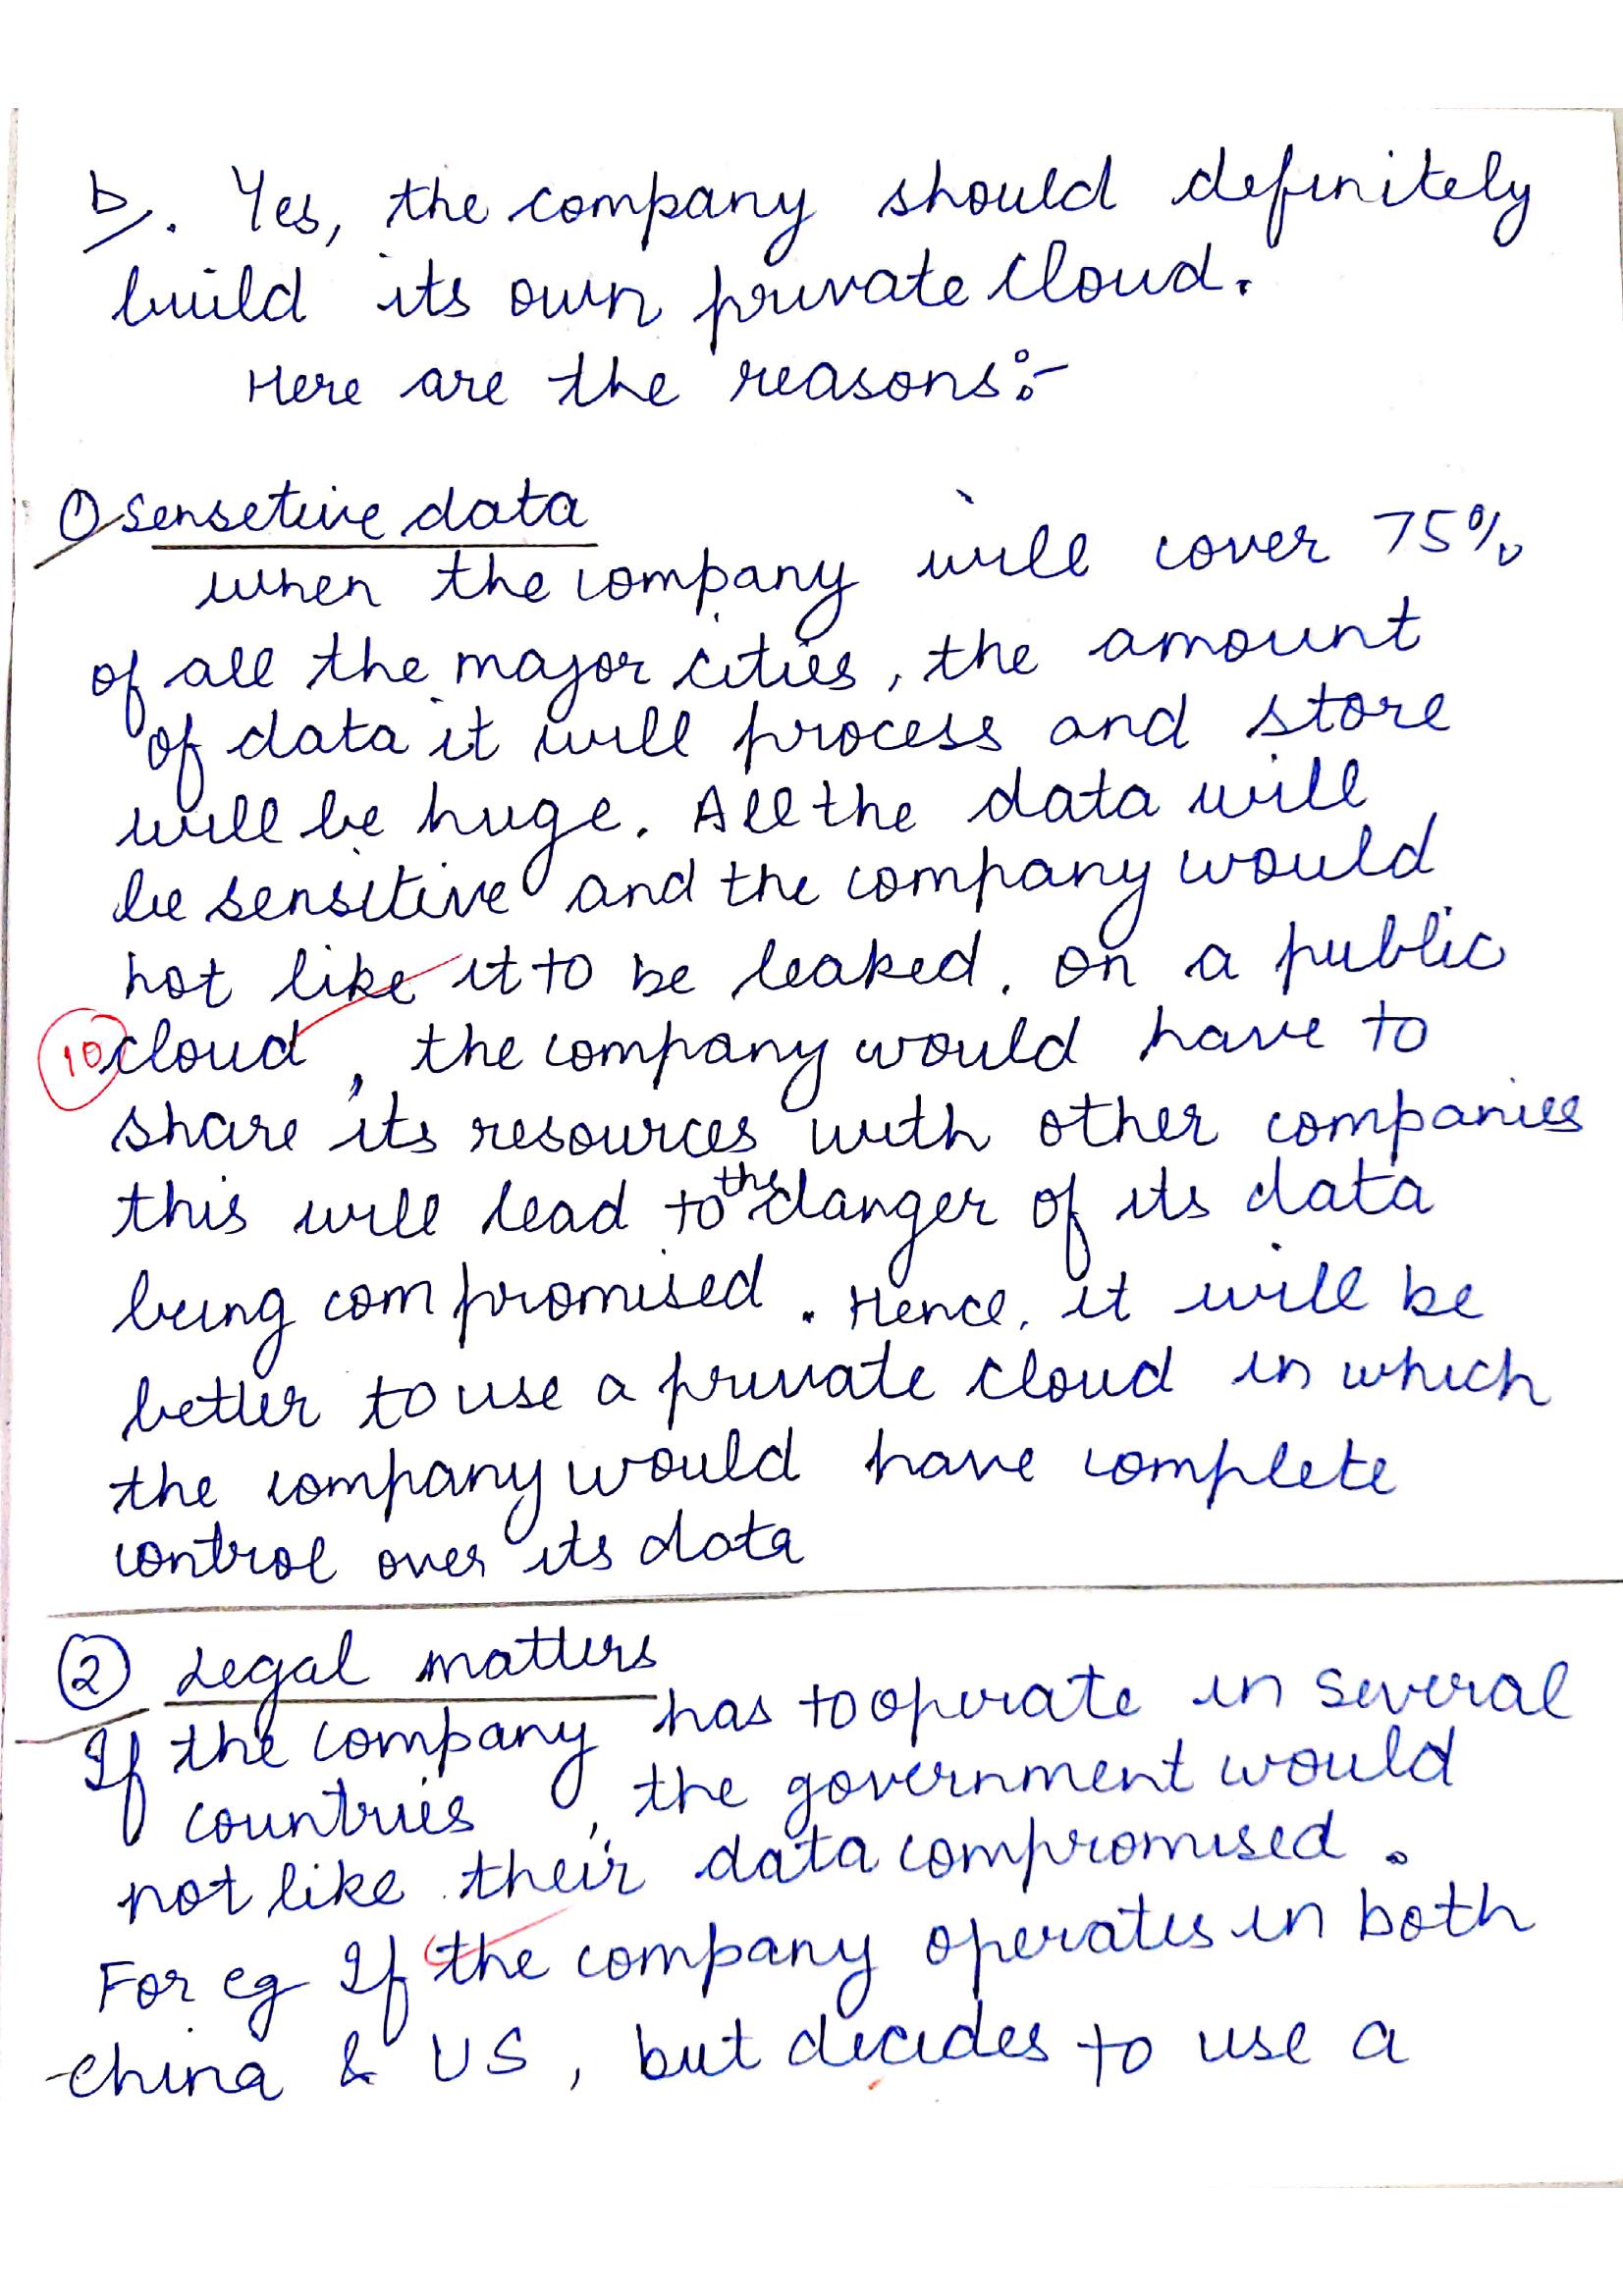 b. Yes, the company should definitely
build its own private cloud.
Here are the reasons:-
① sensetive data
when the company will cover 75%
of all the major cities, the amount
of data it will process and store
will be huge. All the data will
be sensitive and the company would
not like it to be leaked. On a public
10 cloud, the company would have to
share its resources with other companies
this will lead to the danger of its data
being compromised. Hence, it will be
better to use a private cloud in which
the company would have complete
control over its data
② Legal matters
If the company has to operate in several
countries, the government would
not like their data compromised.
For eg If the company operates in both
China & US, but decides to use a